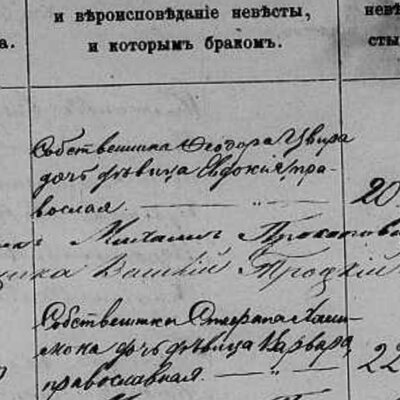 и вѣроисповѣданіе невѣсты,
и которымъ бракомъ.
невѣ
сты
а.
Собственника Ѳеодора Цвира
дочь дѣвица Евдокія, пра-
вослая.
20
Михаилъ Прокопов
щика Троцкій
Собственника Стефана Хами-
мока дочь дѣвица Варвара,
православная.
22